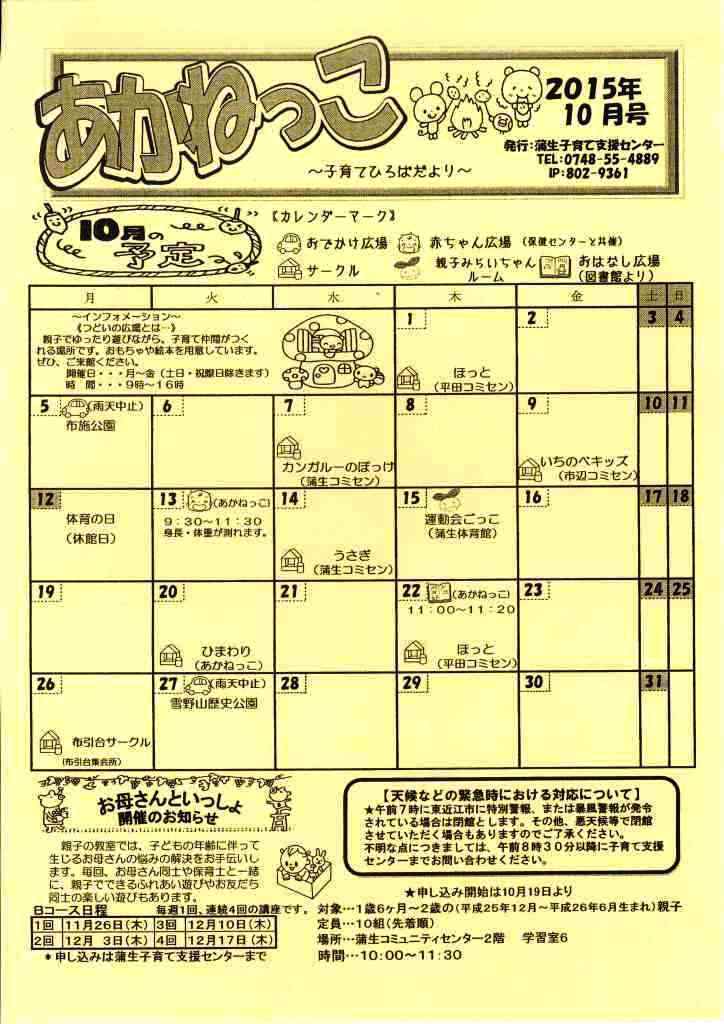 あかねっこ
～子育てひろばだより～
2015年
10月号
発行：蒲生子育て支援センター
TEL:0748-55-4889
IP:802-9361
10月の予定
《カレンダーマーク》
おでかけ広場 赤ちゃん広場（保健センターと共催）
サークル 親子みらいちゃんルーム おはなし広場（図書館より）
月 火 水 木 金 土 日
～インフォメーション～
《つどいの広場とは…》
親子でゆったり遊びながら、子育て仲間がつく
れる場所です。おもちゃや絵本を用意しています。
ぜひ、ご来館ください。
開催日・・・月～金（土日・祝際日除きます）
時 間・・・9時～16時
1
ほっと
（平田コミセン）
2
3 4
5 （雨天中止）
布施公園
6
7
カンガルーのぽっけ
（蒲生コミセン）
8
9
いちのべキッズ
（市辺コミセン）
10 11
12
体育の日
（休館日）
13 （あかねっこ）
9：30～11：30
身長・体重が測れます。
14
うさぎ
（蒲生コミセン）
15
運動会ごっこ
（蒲生体育館）
16
17 18
19
20
ひまわり
（あかねっこ）
21
22 （あかねっこ）
11：00～11：20
ほっと
（平田コミセン）
23
24 25
26
布引台サークル
（布引台集会所）
27 （雨天中止）
雪野山歴史公園
28
29
30
31
お母さんといっしょ
開催のお知らせ
親子の教室では、子どもの年齢に伴って
生じるお母さんの悩みの解決をお手伝いし
ます。毎回、お母さん同士や保育士と一緒
に、親子でできるふれあい遊びやお友だち
同士の楽しい遊びもあります。
Bコース日程 毎週1回、連続4回の講座です。
1回 11月26日（木） 3回 12月10日（木）
2回 12月 3日（木） 4回 12月17日（木）
＊申し込みは蒲生子育て支援センターまで
【天候などの緊急時における対応について】
★午前7時に東近江市に特別警報、または暴風警報が発令
されている場合は閉館とします。その他、悪天候等で閉館
させていただく場合もありますのでご了承ください。
不明な点につきましては、午前8時30分以降に子育て支援
センターまでお問い合わせください。
★申し込み開始は10月19日より
対象…1歳6ヶ月～2歳の（平成25年12月～平成26年6月生まれ）親子
定員…10組（先着順）
場所…蒲生コミュニティセンター2階 学習室6
時間…10:00～11:30